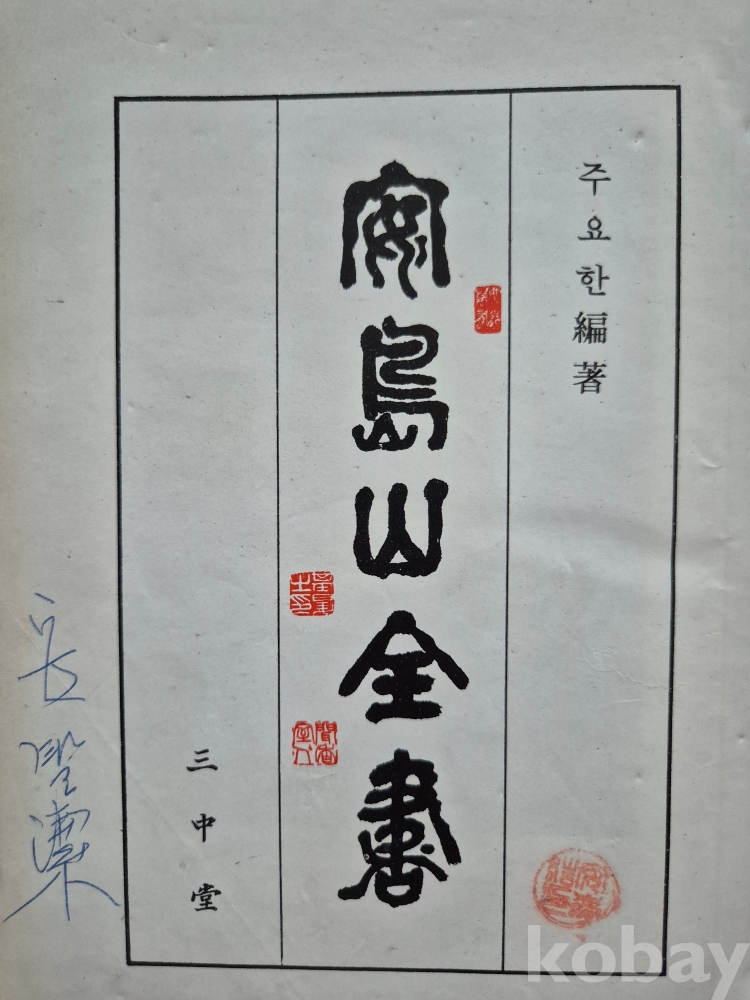 주요한編著
安島山全書
三中堂
kobay